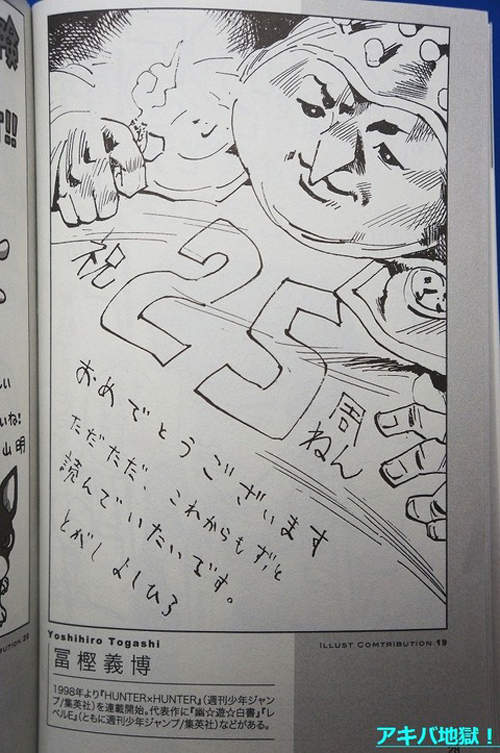 祝
25
周
ねん
おめでとうございます
ただただ、これからもずっと
読んでいたいです。
とがしよしひろ
Yoshihiro Togashi
ILLUST COMTRIBUTION 19
冨樫義博
1998年より『HUNTER×HUNTER』(週刊少年ジャン
プ/集英社)を連載開始。代表作に『幽☆遊☆白書』『レ
ベルE』(ともに週刊少年ジャンプ/集英社)などがある。
!!
いね!
山明
アキバ地獄!